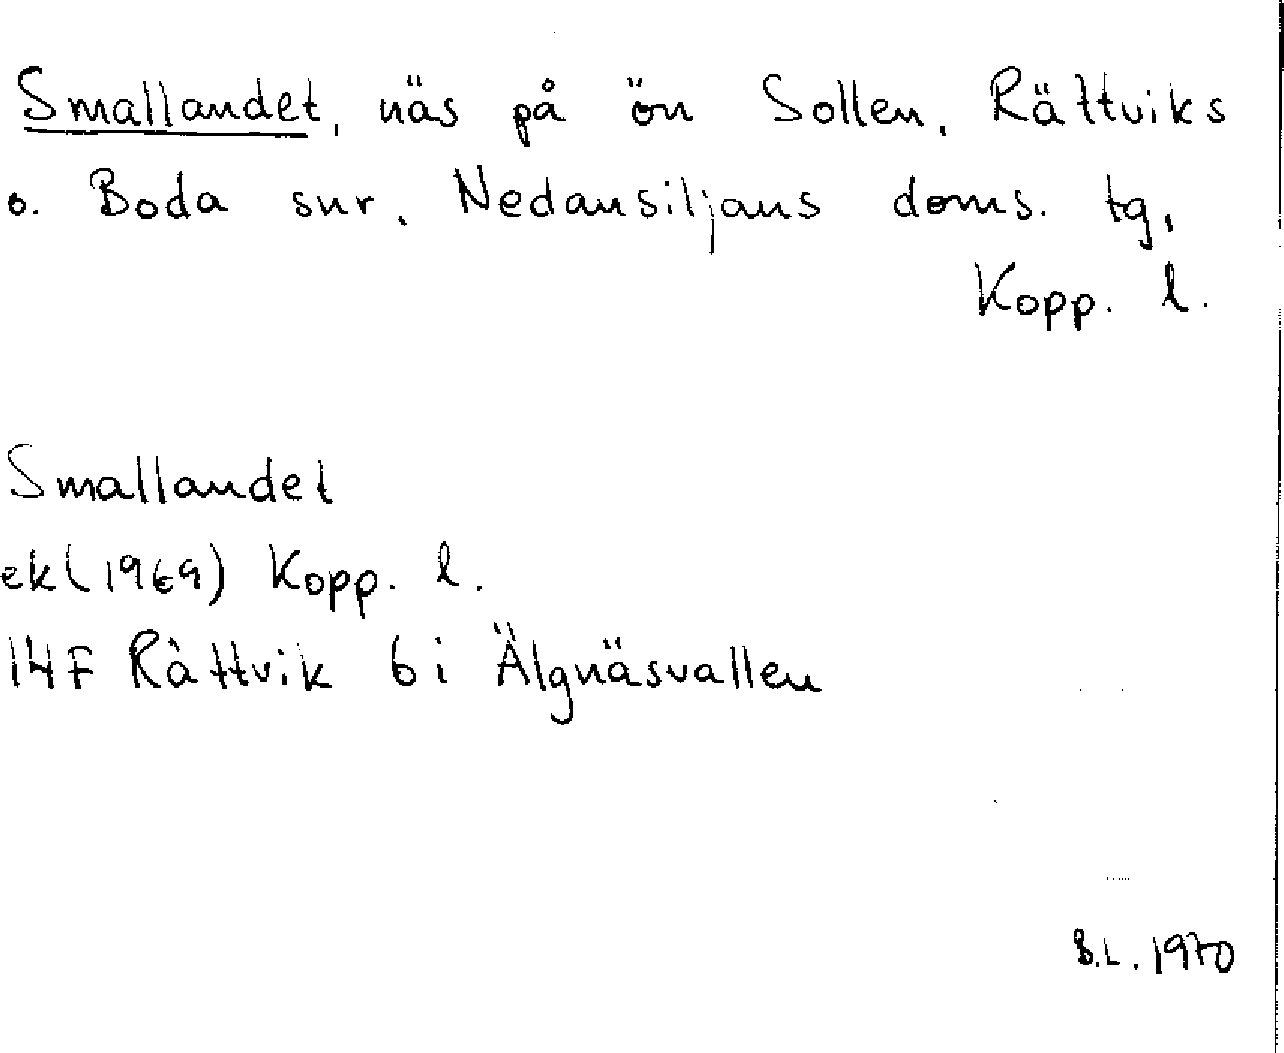 Smallandet, näs på ön Sollen, Rättviks
o. Boda snr, Nedansiljans doms. tg,
Kopp. l.
Smallandet
ek (1969) Kopp. l.
14F Rättvik 6i Älgnäsvallen
B.L. 1970